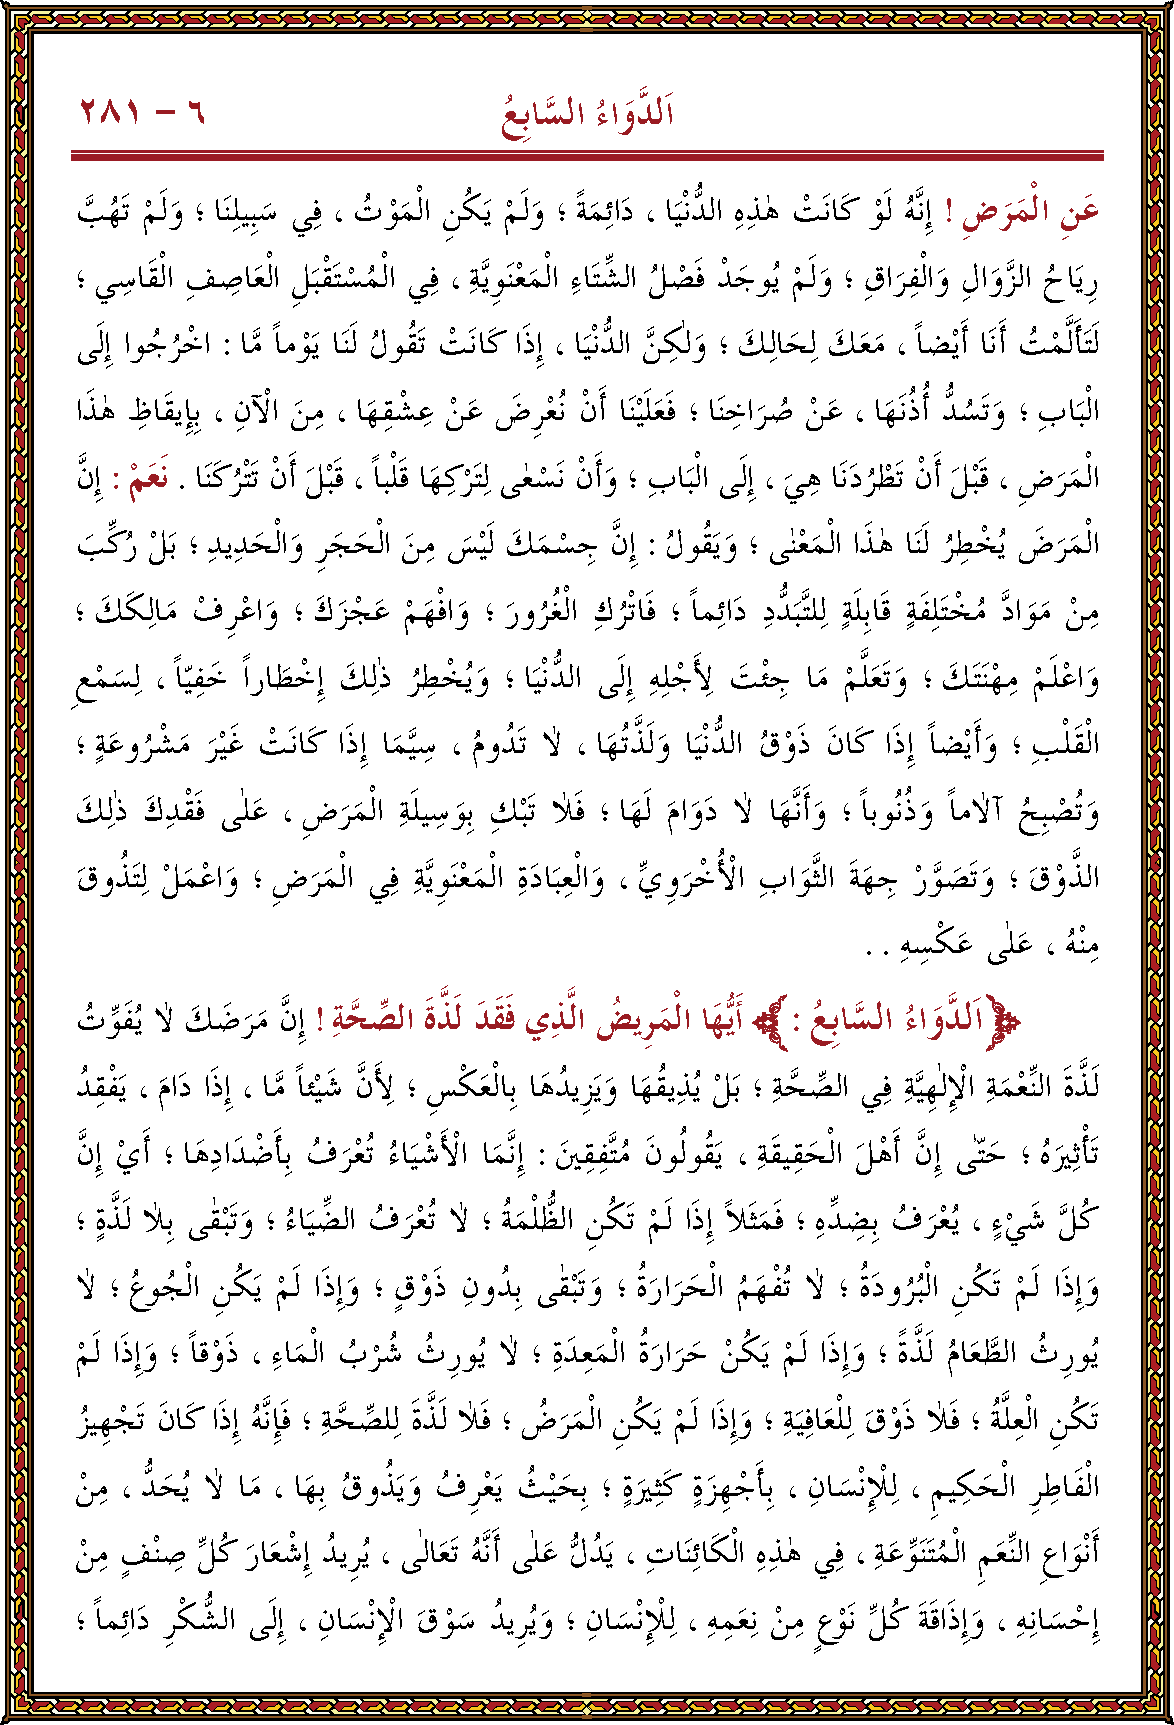 اَلدَّوَاءُ السَّابِعُ ٦ – ٢٨١
عَنِ الْمَرَضِ ! إِنَّهُ لَوْ كَانَتْ هٰذِهِ الدُّنْيَا ، دَائِمَةً ؛ وَلَمْ يَكُنِ الْمَوْتُ ، فِي سَبِيلِنَا ؛ وَلَمْ تَهُبَّ
رِيَاحُ الزَّوَالِ وَالْفِرَاقِ ؛ وَلَمْ يُوجَدْ فَصْلُ الشِّتَاءِ الْمَعْنَوِيَّةِ ، فِي الْمُسْتَقْبَلِ الْعَاصِفِ الْقَاسِي ؛
لَتَأَلَّمْتُ أَنَا أَيْضاً ، مَعَكَ لِحَالِكَ ؛ وَلٰكِنَّ الدُّنْيَا ، إِذَا كَانَتْ تَقُولُ لَنَا يَوْماً مَّا : اخْرُجُوا إِلَى
الْبَابِ ؛ وَتَسُدُّ أُذُنَهَا ، عَنْ صُرَاخِنَا ؛ فَعَلَيْنَا أَنْ نُعْرِضَ عَنْ عِشْقِهَا ، مِنَ الْآنِ ، بِإِيقَاظِ هٰذَا
الْمَرَضِ ، قَبْلَ أَنْ تَطْرُدَنَا هِيَ ، إِلَى الْبَابِ ؛ وَأَنْ نَسْعٰى لِتَرْكِهَا قَلْباً ، قَبْلَ أَنْ تَتْرُكَنَا . نَعَمْ : إِنَّ
الْمَرَضَ يُخْطِرُ لَنَا هٰذَا الْمَعْنٰى ؛ وَيَقُولُ : إِنَّ جِسْمَكَ لَيْسَ مِنَ الْحَجَرِ وَالْحَدِيدِ ؛ بَلْ رُكِّبَ
مِنْ مَوَادَّ مُخْتَلِفَةٍ قَابِلَةٍ لِلتَّبَدُّدِ دَائِماً ؛ فَاتْرُكِ الْغُرُورَ ؛ وَافْهَمْ عَجْزَكَ ؛ وَاعْرِفْ مَالِكَكَ ؛
وَاعْلَمْ مِهْنَتَكَ ؛ وَتَعَلَّمْ مَا جِئْتَ لِأَجْلِهِ إِلَى الدُّنْيَا ؛ وَيُخْطِرُ ذٰلِكَ إِخْطَاراً خَفِيّاً ، لِسَمْعِ
الْقَلْبِ ؛ وَأَيْضاً إِذَا كَانَ ذَوْقُ الدُّنْيَا وَلَذَّتُهَا ، لَا تَدُومُ ، سِيَّمَا إِذَا كَانَتْ غَيْرَ مَشْرُوعَةٍ ؛
وَتُصْبِحُ آلَاماً وَذُنُوباً ؛ وَأَنَّهَا لَا دَوَامَ لَهَا ؛ فَلَا تَبْكِ بِوَسِيلَةِ الْمَرَضِ ، عَلٰى فَقْدِكَ ذٰلِكَ
الذَّوْقَ ؛ وَتَصَوَّرْ جِهَةَ الثَّوَابِ الْأُخْرَوِيِّ ، وَالْعِبَادَةِ الْمَعْنَوِيَّةِ فِي الْمَرَضِ ؛ وَاعْمَلْ لِتَذُوقَ
مِنْهُ ، عَلٰى عَكْسِهِ . .
اَلدَّوَاءُ السَّابِعُ : أَيُّهَا الْمَرِيضُ الَّذِي فَقَدَ لَذَّةَ الصِّحَّةِ ! إِنَّ مَرَضَكَ لَا يُفَوِّتُ
لَذَّةَ النِّعْمَةِ الْإِلٰهِيَّةِ فِي الصِّحَّةِ ؛ بَلْ يُذِيقُهَا وَيَزِيدُهَا بِالْعَكْسِ ؛ لِأَنَّ شَيْئاً مَّا ، إِذَا دَامَ ، يَفْقِدُ
تَأْثِيرَهُ ؛ حَتّٰى إِنَّ أَهْلَ الْحَقِيقَةِ ، يَقُولُونَ مُتَّفِقِينَ : إِنَّمَا الْأَشْيَاءُ تُعْرَفُ بِأَضْدَادِهَا ؛ أَيْ إِنَّ
كُلَّ شَيْءٍ ، يُعْرَفُ بِضِدِّهِ ؛ فَمَثَلاً إِذَا لَمْ تَكُنِ الظُّلْمَةُ ؛ لَا تُعْرَفُ الضِّيَاءُ ؛ وَتَبْقٰى بِلَا لَذَّةٍ ؛
وَإِذَا لَمْ تَكُنِ الْبُرُودَةُ ؛ لَا تُفْهَمُ الْحَرَارَةُ ؛ وَتَبْقٰى بِدُونِ ذَوْقٍ ؛ وَإِذَا لَمْ يَكُنِ الْجُوعُ ؛ لَا
يُورِثُ الطَّعَامُ لَذَّةً ؛ وَإِذَا لَمْ يَكُنْ حَرَارَةُ الْمَعِدَةِ ؛ لَا يُورِثُ شُرْبُ الْمَاءِ ، ذَوْقاً ؛ وَإِذَا لَمْ
تَكُنِ الْعِلَّةُ ؛ فَلَا ذَوْقَ لِلْعَافِيَةِ ؛ وَإِذَا لَمْ يَكُنِ الْمَرَضُ ؛ فَلَا لَذَّةَ لِلصِّحَّةِ ؛ فَإِنَّهُ إِذَا كَانَ تَجْهِيزُ
الْفَاطِرِ الْحَكِيمِ ، لِلْإِنْسَانِ ، بِأَجْهِزَةٍ كَثِيرَةٍ ؛ بِحَيْثُ يَعْرِفُ وَيَذُوقُ بِهَا ، مَا لَا يُحَدُّ ، مِنْ
أَنْوَاعِ النِّعَمِ الْمُتَنَوِّعَةِ ، فِي هٰذِهِ الْكَائِنَاتِ ، يَدُلُّ عَلٰى أَنَّهُ تَعَالٰى ، يُرِيدُ إِشْعَارَ كُلِّ صِنْفٍ مِنْ
إِحْسَانِهِ ، وَإِذَاقَةَ كُلِّ نَوْعٍ مِنْ نِعَمِهِ ، لِلْإِنْسَانِ ؛ وَيُرِيدُ سَوْقَ الْإِنْسَانِ ، إِلَى الشُّكْرِ دَائِماً ؛